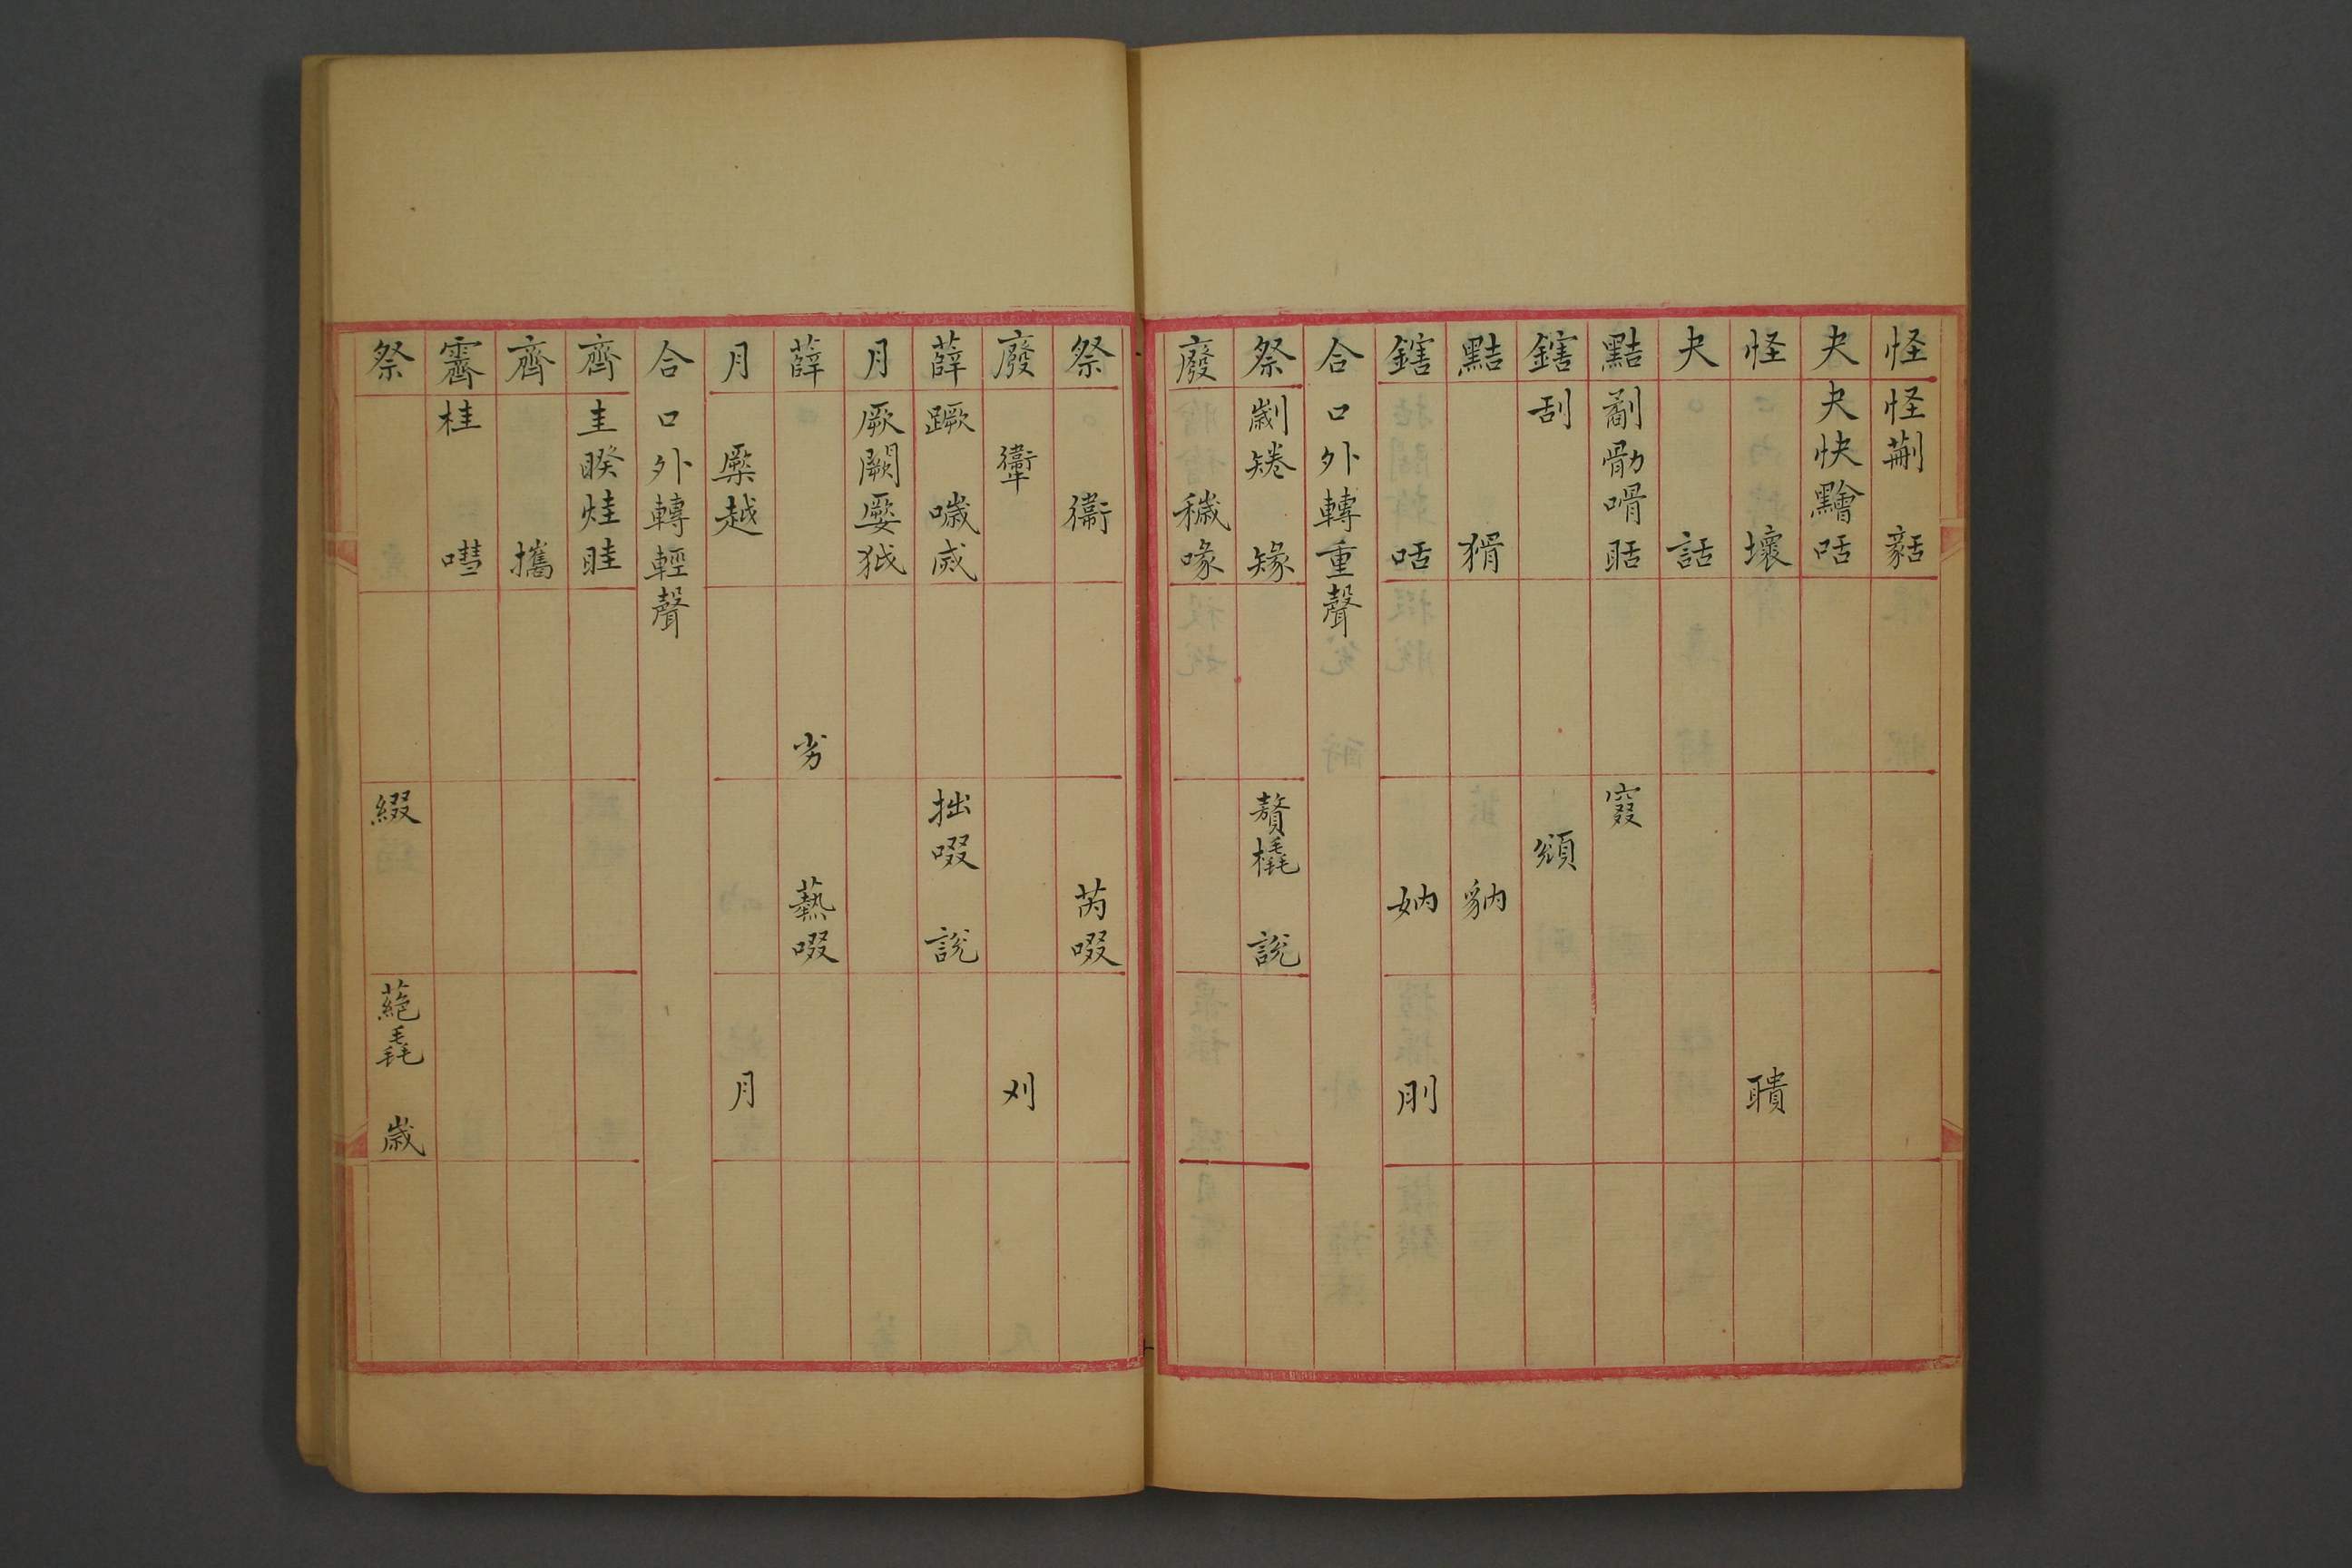 怪 怪 蒯 𧬨
夬 夬 快 黵 咶
怪 壞 聵
夬 話
黠 劀 勩 嗗 聒 窡
鎋 刮 頒
黠 猾 豽
鎋 咶 妠 刖
合口外轉重聲
祭 劌 㢧 㝿 贅 橇 說
廢 穢 喙
祭 衞 芮 啜
廢 𧗿 刈
薛 蹶 噦 烕 拙 啜 說
月 厥 闕 㜸 狘
薛 劣 爇 啜
月 㮕 越 月
合口外轉輕聲
齊 圭 睽 烓 眭
齊 攜
霽 桂 嘒
祭 綴 蕝 毳 歲